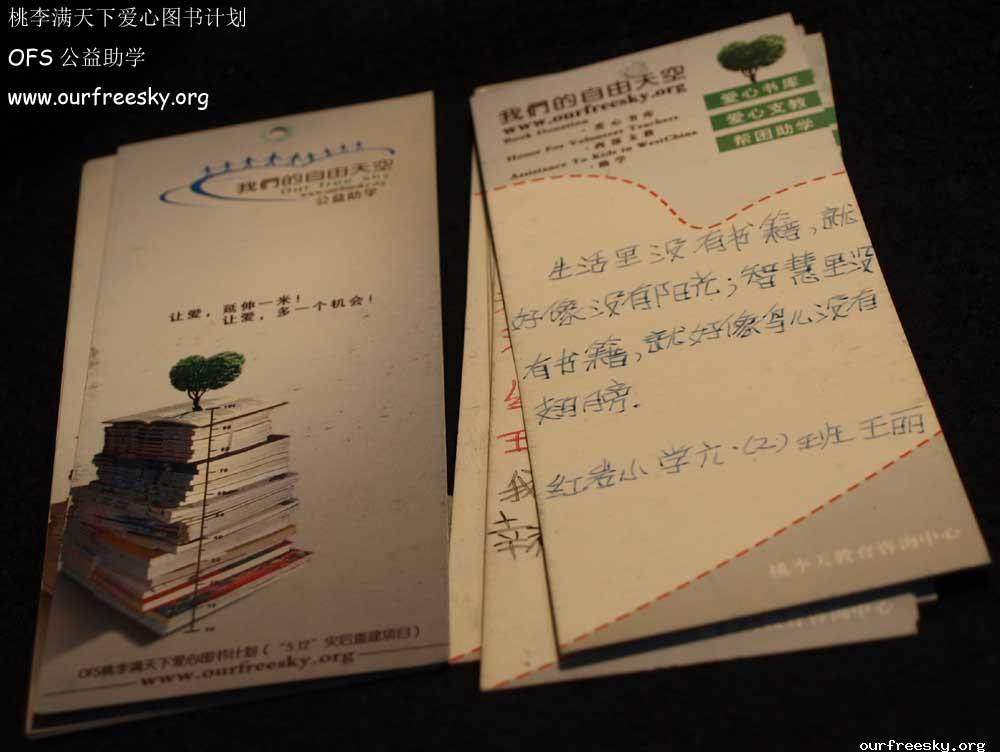 桃李满天下爱心图书计划
OFS 公益助学
www.ourfreesky.org
我們的自由天空
Our free sky
公益助学
让爱，延伸一米！
让爱，多一个机会！
OFS桃李满天下爱心图书计划（“5.12”灾后重建项目）
www.ourfreesky.org
我們的自由天空
www.ourfreesky.org
Book Donation
·爱心书库
Home For Volunteer Teachers
·西部支教
Assistance To Kids in WestChina
·助学
爱心书库
爱心支教
帮困助学
生活里没有书籍，就
好像没有阳光；智慧里没
有书籍，就好像鸟儿没有
翅膀.
红岩小学六·(2)班王丽
桃李天教育咨询中心
王
我
ourfreesky.org